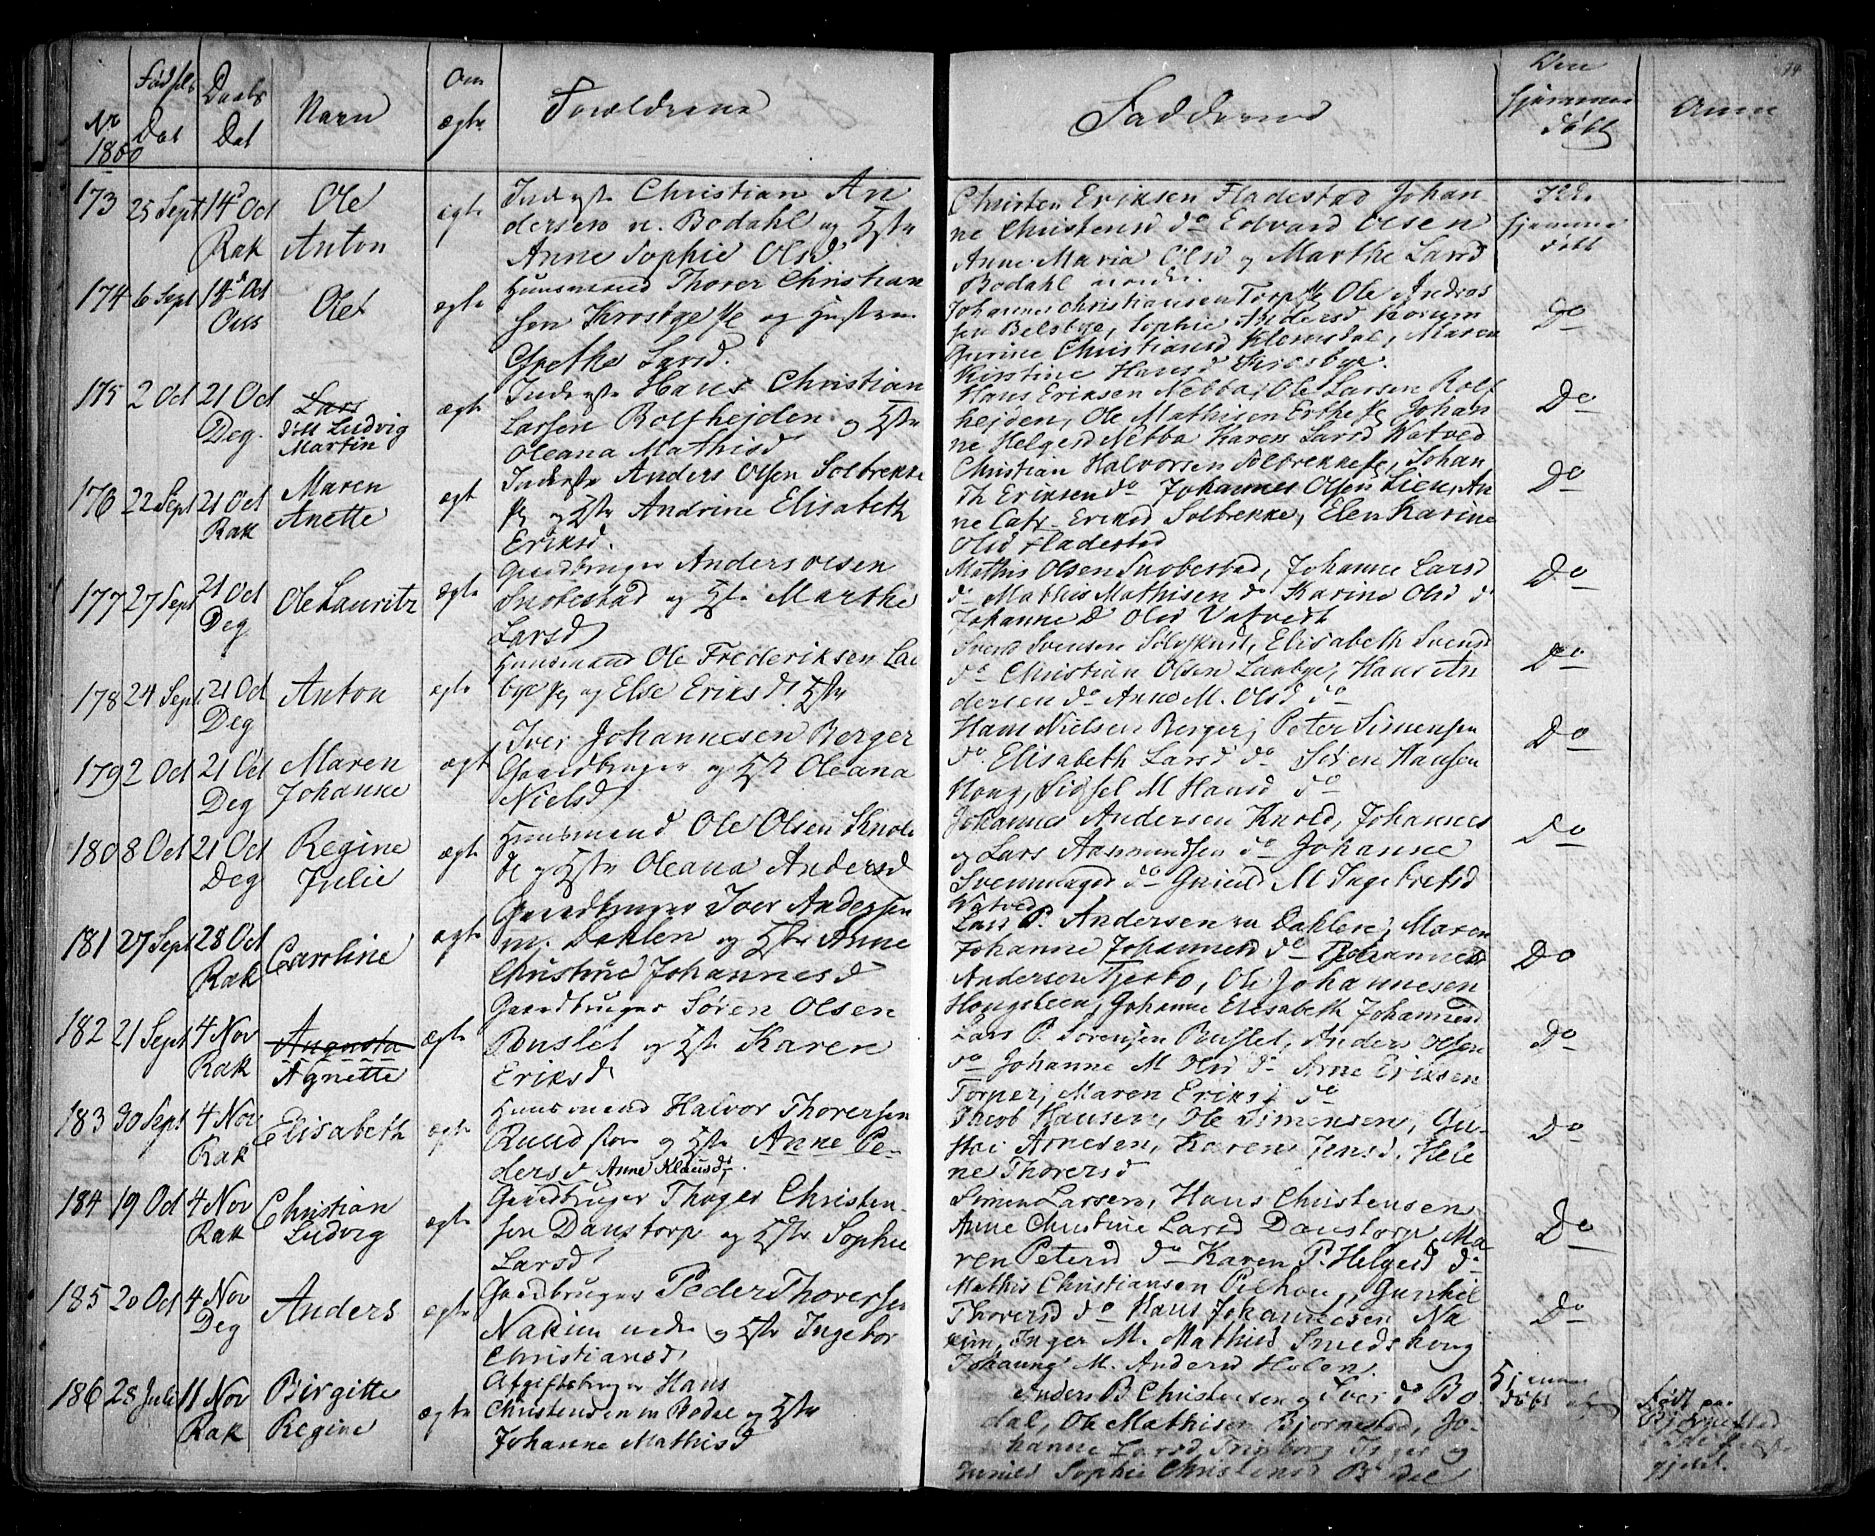 Nr
1860
Fødsels
Dat
Daabs
Dat
Navn
Om
ægte
Forældrene
Fadderne
Den
hjemme
døbt
Anm
173 25 Sept 14 Oct
Rak
Ole
Anton
ægte
Inderste Christian An
dersen n. Bodahl og Hstr
Anne Sophie Olsd.
Christen Eriksen Fladestad Johan
ne Christensd do Edvard Olsen
Anne Maria Olsd og Marthe Larsd
Bodahl nordre.
hjemme
døbt
174 6 Sept 14 Oct
Ous
Olef
ægte
Huusmand Thorer Christian
sen Krosbye og Hustru
Grethe Larsd.
Johannes Christiansen Torp Ole Andreas
sen Belsbye, Sophie Andersd Horum
Gurine Christiansd Klemsdal, Maren
Kirstine Hansd Krosbye.
Do
175 2 Oct 21 Oct
Deg.
Lars
Ludvig
Martin
ægte
Inderste Hans Christian
Larsen Rolfhejden og Hstr
Oleana Mathisd
Hans Eriksen Nebba, Ole Larsen Rolf
hejden, Ole Mathisen Erthe Johan
ne Helgesd Nebba Karen Larsd Watved
Do
176 22 Sept 21 Oct
Rak
Maren
Anette
ægte
Inderste Anders Olsen Solbrekke
og Hstr Andrine Elisabeth
Eriksd.
Christian Halvorsen Solbrekke, Johan
Th Eriksen do Johannes Olsen Lien, An
ne Cath. Eriksd Solbrekke, Elen Karine
Olsd Fladestad
Do
177 27 Sept 21 Oct
Deg
Ole Lauritz
ægte
Gaardbruger Anders Olsen
Snobestad og Hstr Marthe
Larsd
Mathis Olsen Snobestad, Johanne Larsd
do Mathis Mathisen do Karine Olsd do
Johanne D Olsd Vatvedt
Do
178 24 Sept 21 Oct
Deg
Anton
ægte
Huusmand Ole Frederiksen Lar
bye og Else Eriksd. Hstr
Svend Svensen Solyskud, Elisabeth Svensd
do Christian Olsen Laabye, Hans An
dersen do Anne M. Olsd do
Do
179 2 Oct 21 Oct
Deg
Maren
Johanne
ægte
Iver Johannesen Berger
Gaardbruger og Hstr Oleana
Nielsd
Hans Nielsen Berger, Peter Simensen
do. Elisabeth Larsd do Søren Hansen
Houg, Sidsel M Hansd do
Do
180 8 Oct 21 Oct
Deg
Regine
Julie
ægte
Huusmand Ole Olsen Knol
og Hstr Oleana Andersd
Johannes Andersen Knold, Johannes
og Lars Aasmundsen do Johanne
Svenningsd do M Ingebretsd
Watved
Do
181 27 Sept 28 Oct
Rak
Caroline
ægte
Gaardbruger Iver Andersen
m. Dahlen og Hstr Anne
Christine Johannesd
Lars P. Andersen Dahlen, Maren
Johanne Johannesd do Johannes
Andersen, Ole Johannesen
Hougsteen, Johanne Elisabeth Johannesd
Do
182 21 Sept 4 Nov
Rak
Augusta
Agnette
ægte
Gaardbruger Søren Olsen
Buslet og Hstr Karen
Eriksd
Lars P. Sorensen Buslet, Anders Olsen
do Johanne M Olsd do Arne Eriksen
Torper, Maren Eriksd do
Do
183 30 Sept 4 Nov
Rak
Elisabeth
ægte
Huusmand Halvor Thoresen
Ruud store og Hstr Anne Pe
dersd Anne Klausd.
Jacob Hansen, Ole Simensen, Gu-
Arnesen, Karen Jensd, Hele
ne Thorersd
Do
184 19 Oct 4 Nov
Rak
Christian
Ludvig
ægte
Gaardbruger Thoger Christen-
sen Danstorp og Hstr Sophie
Larsd
Simen Larsen, Hans Christensen
Anne Christine Larsd Danstorp, Ma
ren Petersd do Karen P. Helgesd do
Do
185 20 Oct 4 Nov
Deg
Anders
ægte
Gaardbruger Peder Thoresen
Nakim nedre og Hstr Ingebor
Christiansd
Mathis Christiansen Pilhoug, Gunhil
Thorersd do Hans Johannesen Na
kim, Inger M. Mathisd Smedshoug
Johanne M. Andersd Holen.
Do
186 28 Juli 11 Nov
Rak
Birgitte
Regine
ægte
Afgiftsbruger Hans
Christensen m Bodal og Hstr
Johanne Mathisd
Anders B Christensen og Iver do Bo
dal, Ole Mathisen Bjørnestad, Jo-
hanne Larsd og
Sophie Christensd Bodal
Hjemme
døbt
Født paa
Bjørnestad
gjeld.